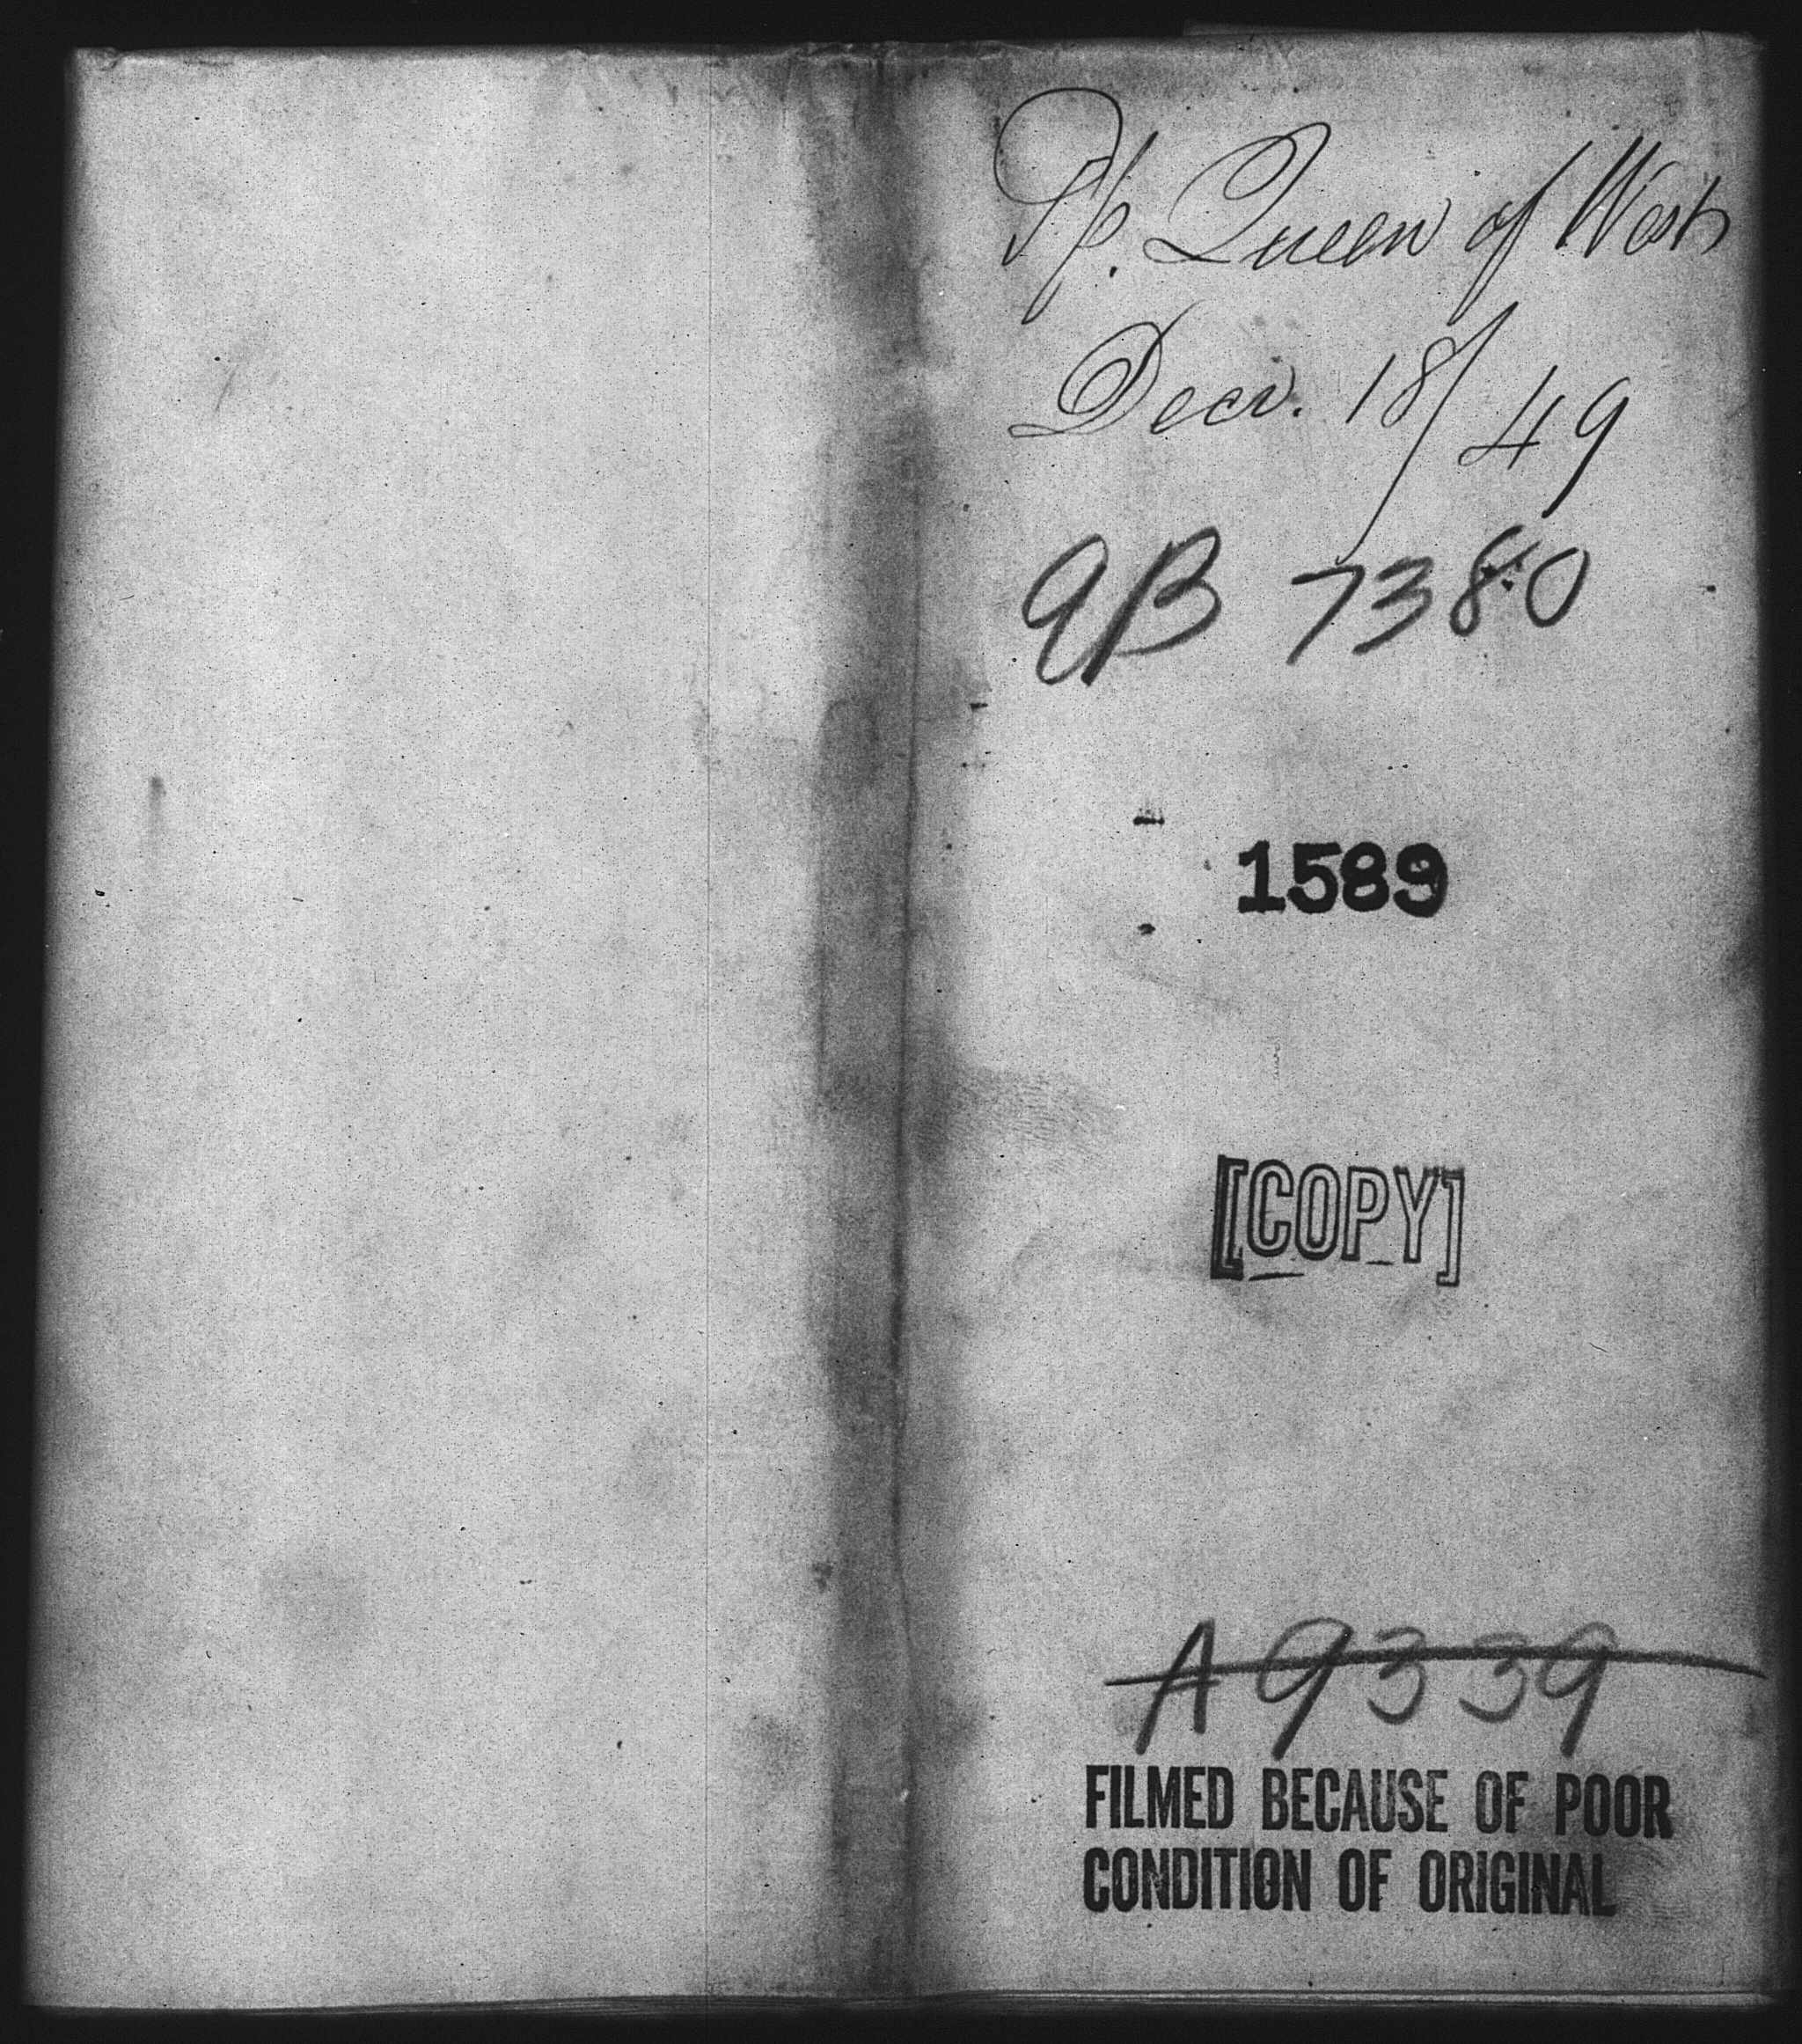 Sp. Queen of West
Decr. 18/49
QB 7380
1589
[COPY]
A 9339
FILMED BECAUSE OF POOR
CONDITION OF ORIGINAL